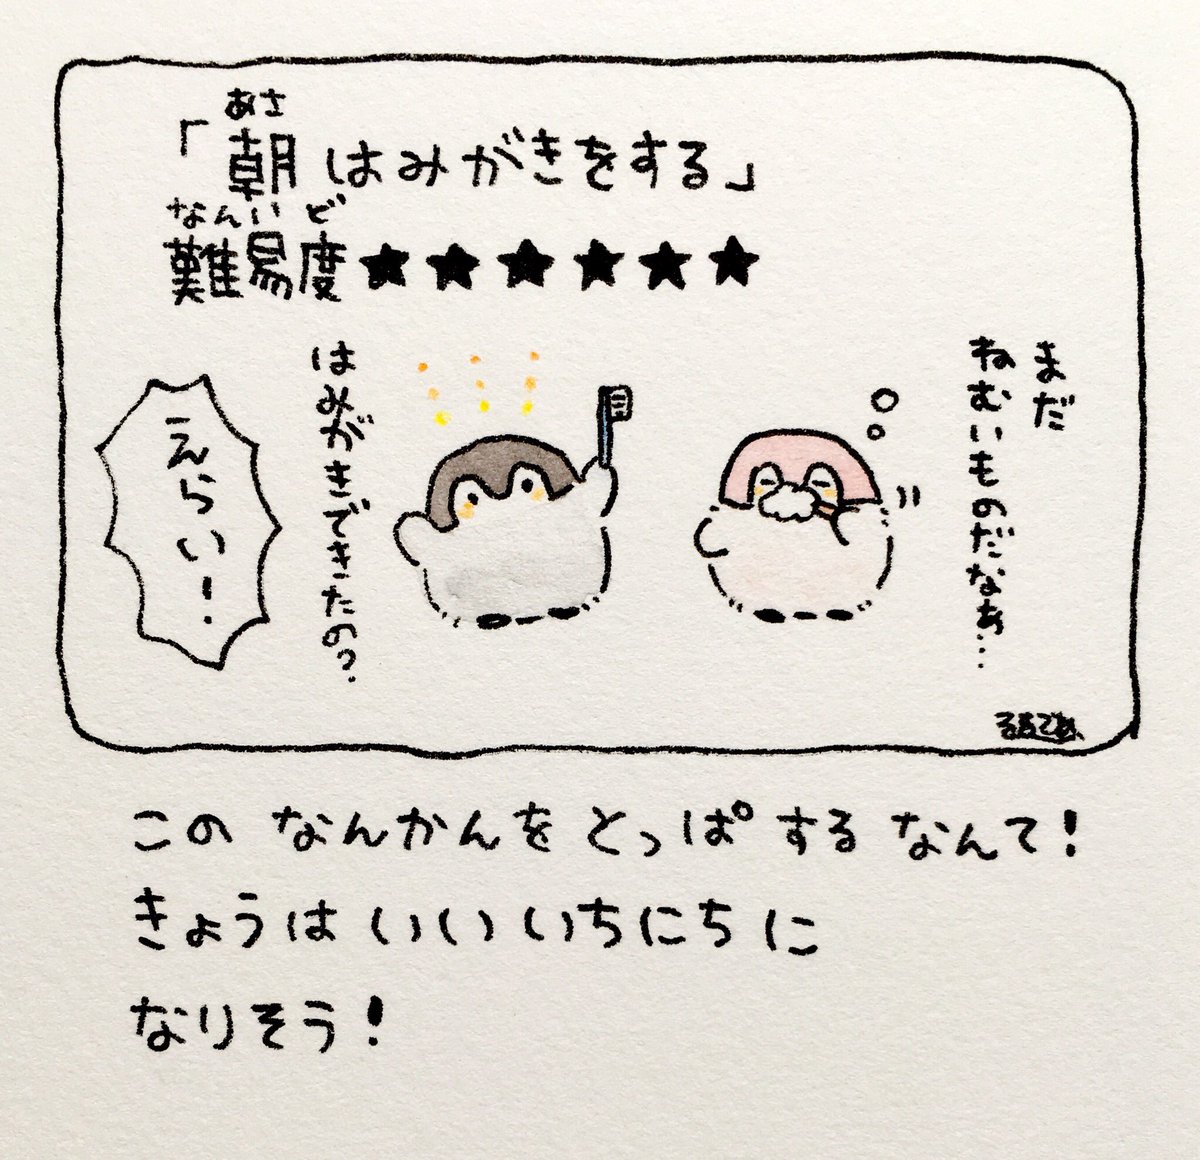 あさ
「朝はみがきをする」
なんいど
難易度★★★★★★
まだ
ねむいものだなぁ…
はみがきできたの?
えらい!
るるてあ
このなんかんをとっぱするなんて!
きょうはいいいちにちに
なりそう!